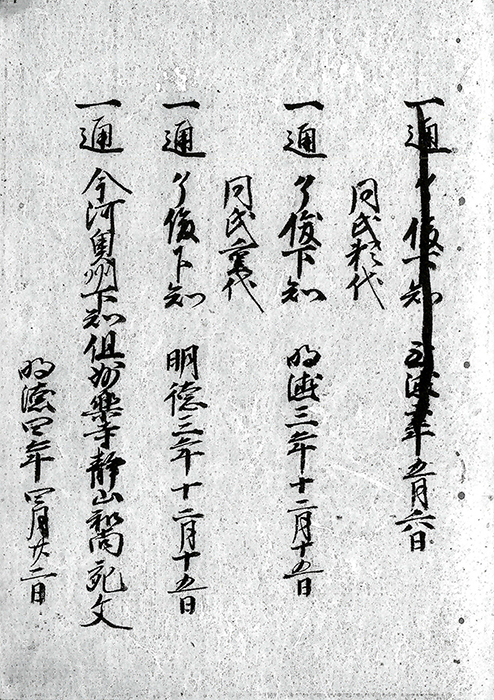 一通 了俊下知 年五月六日
同氏代
一通 了俊下知 明徳三年十二月十五日
同氏重代
一通 了俊下知 明徳三年十二月十五日
一通 今河奥州下知但妙楽寺静山和尚文
明徳四年四月廿二日